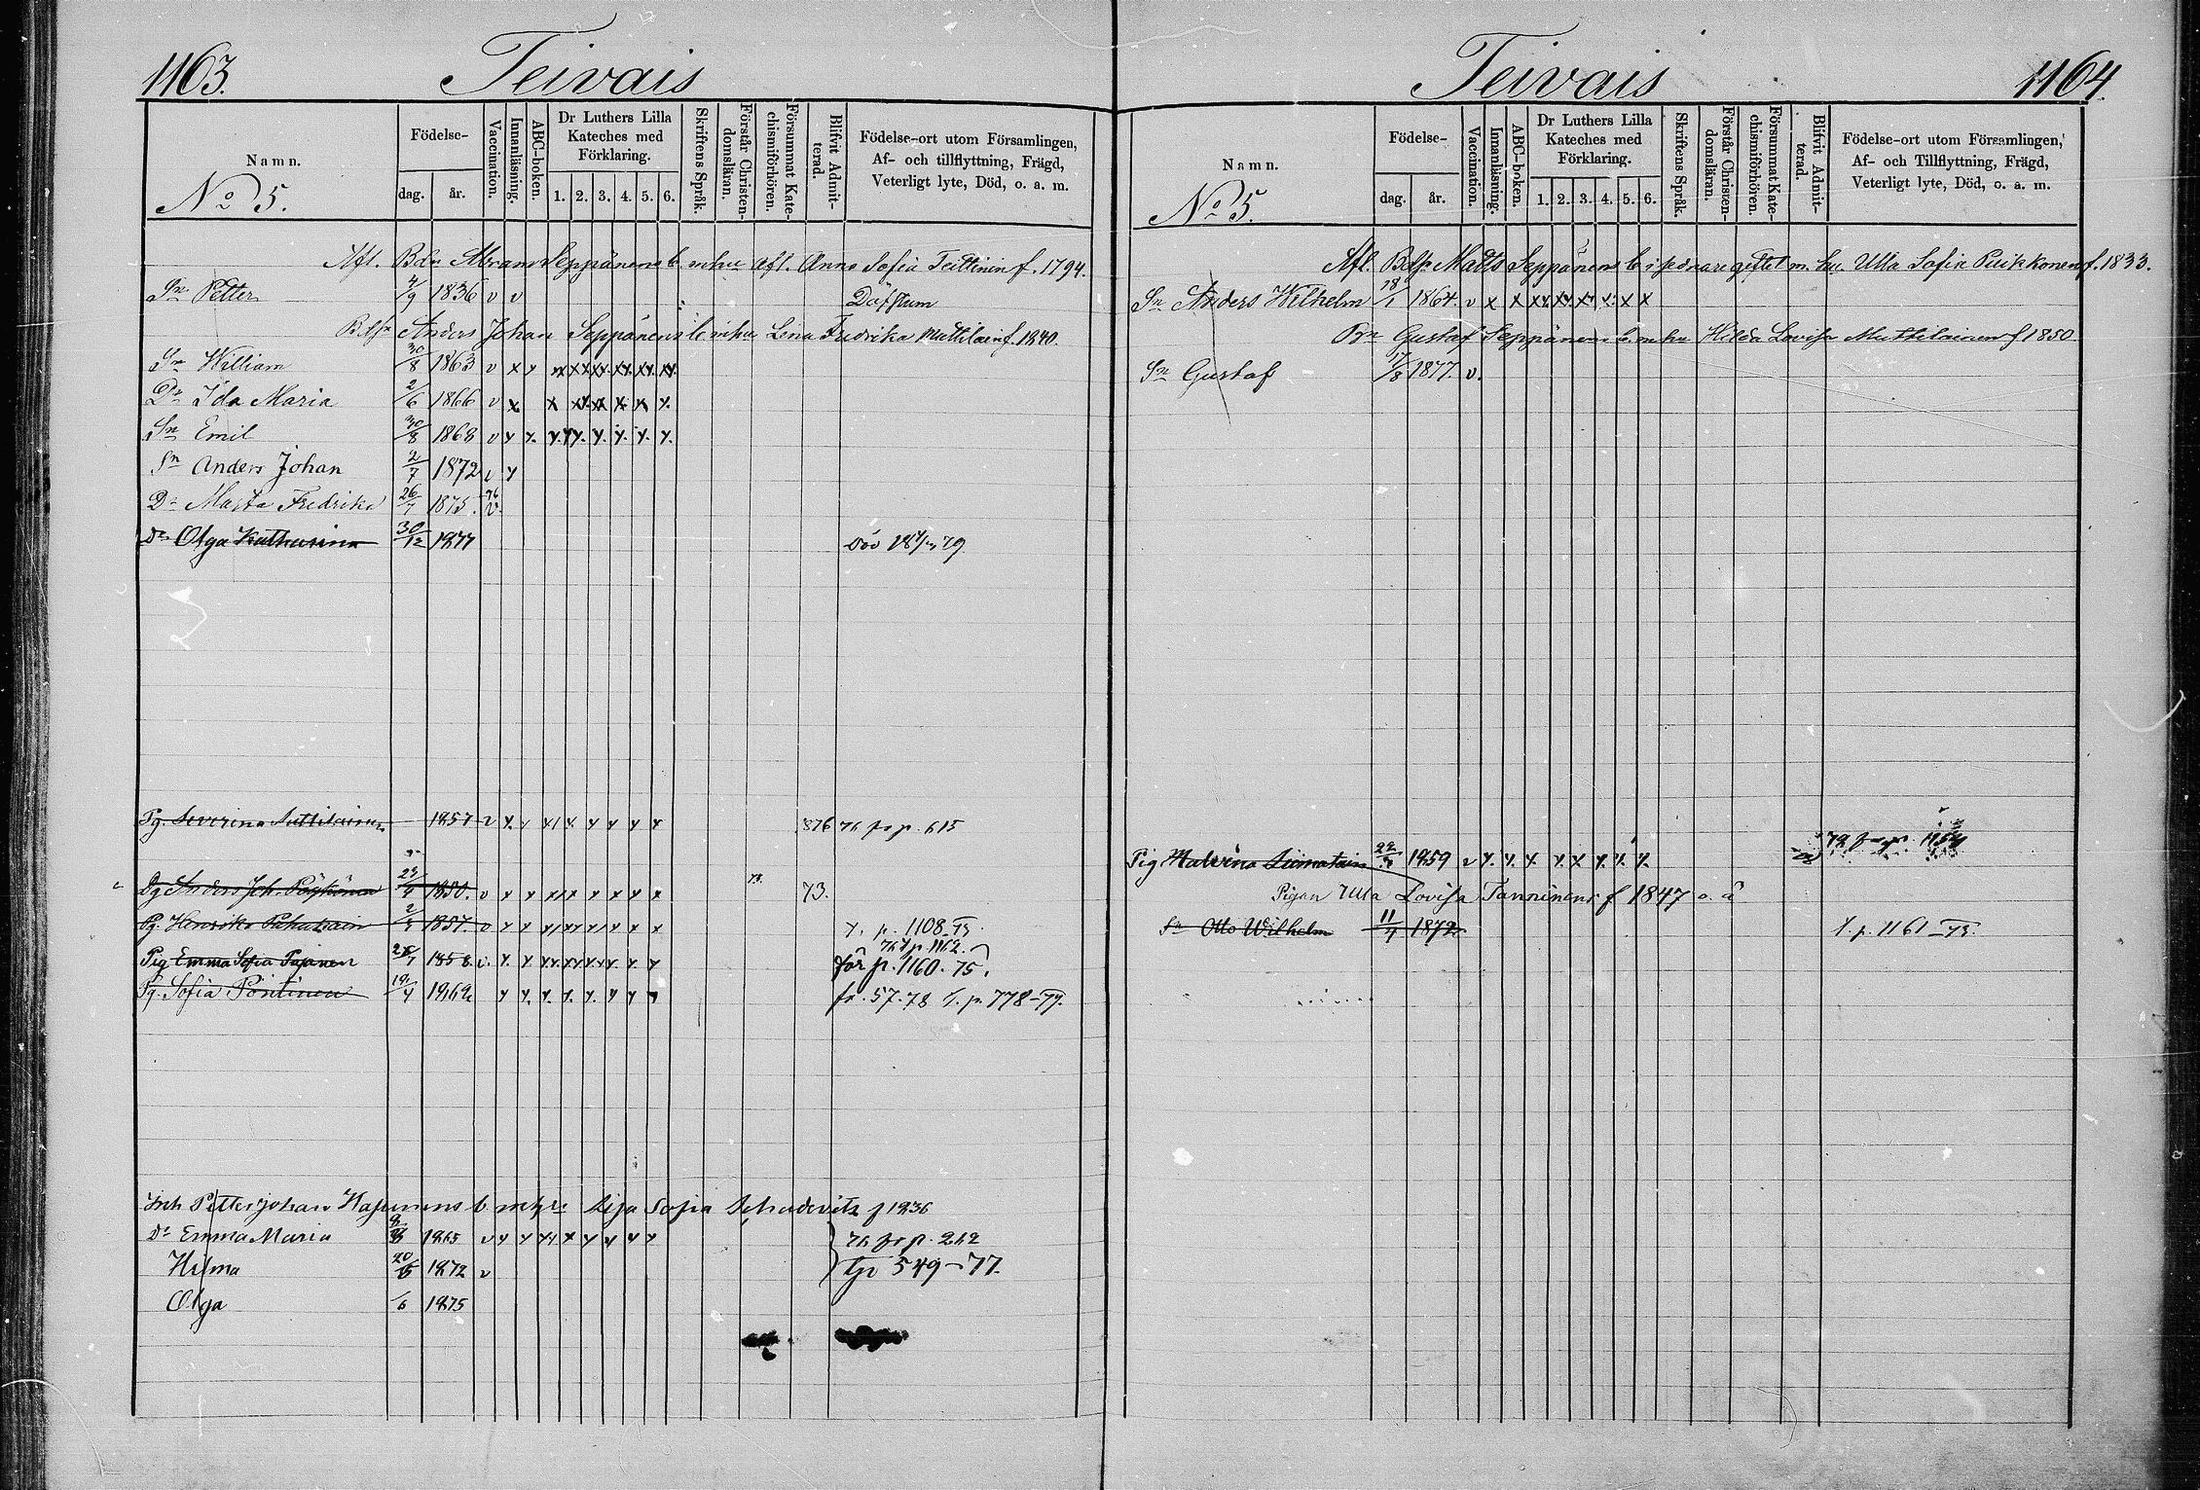 1163. Teivais
Namn. Födelse- dag. år. Vaccination. Innanläsning. ABC-boken. Dr Luthers Lilla Kateches med Förklaring. 1. 2. 3. 4. 5. 6. Skriftens Språk. Förstår Christendomsläran. Försummat Katechismiförhören. Blifvit Admitterad. Födelse-ort utom Församlingen, Af- och tillflyttning, Frägd, Veterligt lyte, Död, o. a. m.
No 5.
Afl. Bdn Abram Seppänens b. m hu Afl. Anna Sofia Teittinen f. 1794.
Sn Petter 4/9 1836 v v Döfstum
Bdsn Anders Johan Seppänens b. m hu Lena Fredrika Mattilain f. 1840.
Sn William 30/8 1863 v x
Dr Ida Maria 2/6 1866 v x
Sn Emil 30/8 1868 v
Sn Anders Johan 2/7 1872 v
Dr Marta Fredrika 26/7 1875. 76 v.
Dr Olga Katharina 30/12 1877 död 79
Pg. Severina 1857 v 876 76 fr p. 615
Dg Anders Joh. 1850. v 73. 73.
Pg. Henrika 2/5 1857. v f. p. 1108-75.
Pig Emma Sofia Pajanen 1858. v. 76 f p. 1162. för p. 1160. 75.
Pg. Sofia Pöntinen 19/4 1862 fr. 57-78 f. p. 778-79.
Inh Petter Johan b. m hr Lisa Sofia f 1836
Dr Emma Maria 1865 v 76 fr p. 262
Hilma 20/5 1872 v 549-77.
Olga /6 1875
Teivais 1164.
Namn. Födelse- dag. år. Vaccination. Innanläsning. ABC-boken. Dr Luthers Lilla Kateches med Förklaring. 1. 2. 3. 4. 5. 6. Skriftens Språk. Förstår Christendomsläran. Försummat Katechismiförhören. Blifvit Admitterad. Födelse-ort utom Församlingen, Af- och Tillflyttning, Frägd, Veterligt lyte, Död, o. a. m.
No 5.
Afl. Bdsn Matts Seppänens b. gettet m. hu. Ulla Sofia Puikkonen f. 1833.
Sn Anders Wilhelm 18/1 1864. v x x
Bn Gustaf Seppänens b. m hu Hilda Lovisa Muttilainen f 1850.
Sn Gustaf 17/8 1877. v.
Pig Malvina Siimatain 22/5 1859 v
Pigan Ulla Lovisa Tanninens f 1847 o. ä
Sn Otto Wilhelm 11/4 1872 f. p. 1161-75.